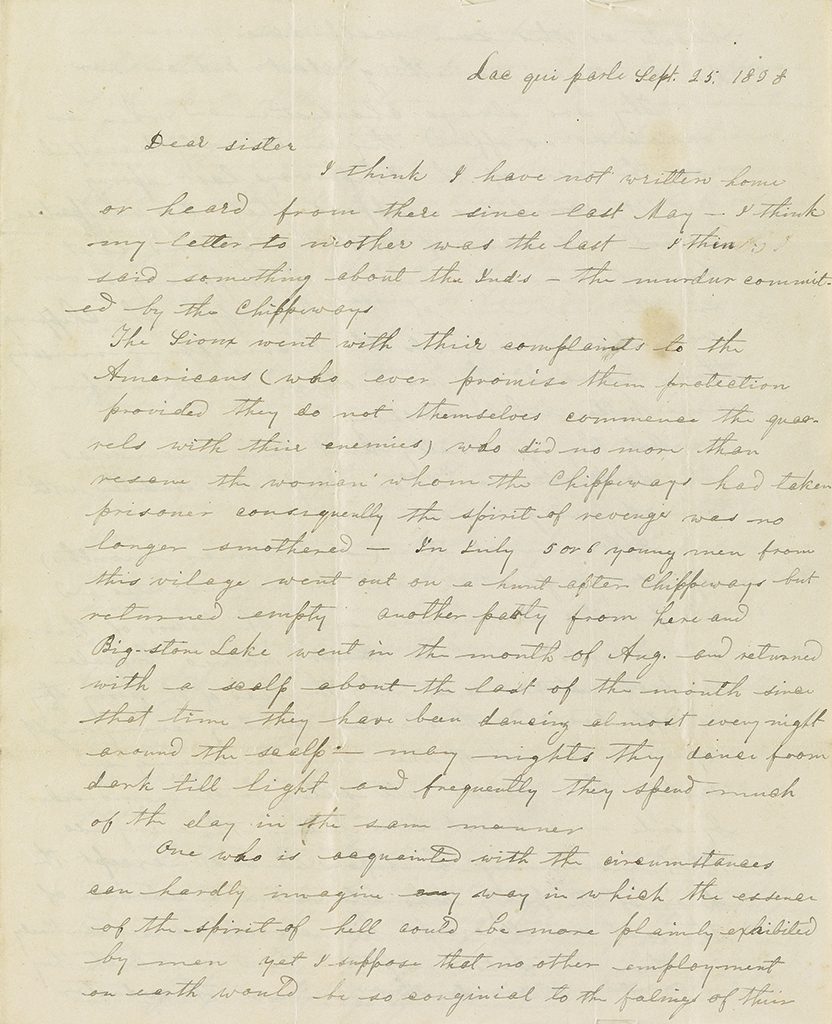 Lac qui parle Sept. 25. 1838
Dear sister
I think I have not written home
or heard from there since last May - I think
my letter to mother was the last - I think I
said something about the Ind's - the murdur commit-
ed by the Chippeways
The Sioux went with thier complaints to the
Americans (who ever promise them protection
provided they do not themselves commence the quar-
rels with thier enemies) who did no more than
rescue the woman whom the Chippeways had taken
prisoner consequently the spirit of revenge was no
longer smothered - In July 5 or 6 young men from
this vilage went out on a hunt after Chippeways but
returned empty another party from here and
Big-stone Lake went in the month of Aug. and returned
with a scalp about the last of the month since
that time they have been dancing almost every night
around the scalp - many nights they dance from
dark till light and frequently they spend much
of the day in the same manner
One who is acquainted with the circumstances
can hardly imagine any way in which the essence
of the spirit of hell could be more plainly exhibited
by men yet I suppose that no other employment
on earth would be so conginial to the falings of thier